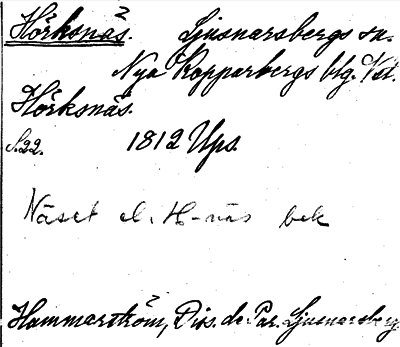 Hörksnäs. Ljusnarsbergs sn.
Nya Kopparbergs blg. Vstm.
Hörksnäs.
S. 22. 1812 Ups.
Näset el. H-näs bek
Hammarström, Dis. de Par. Ljusnarsberg.